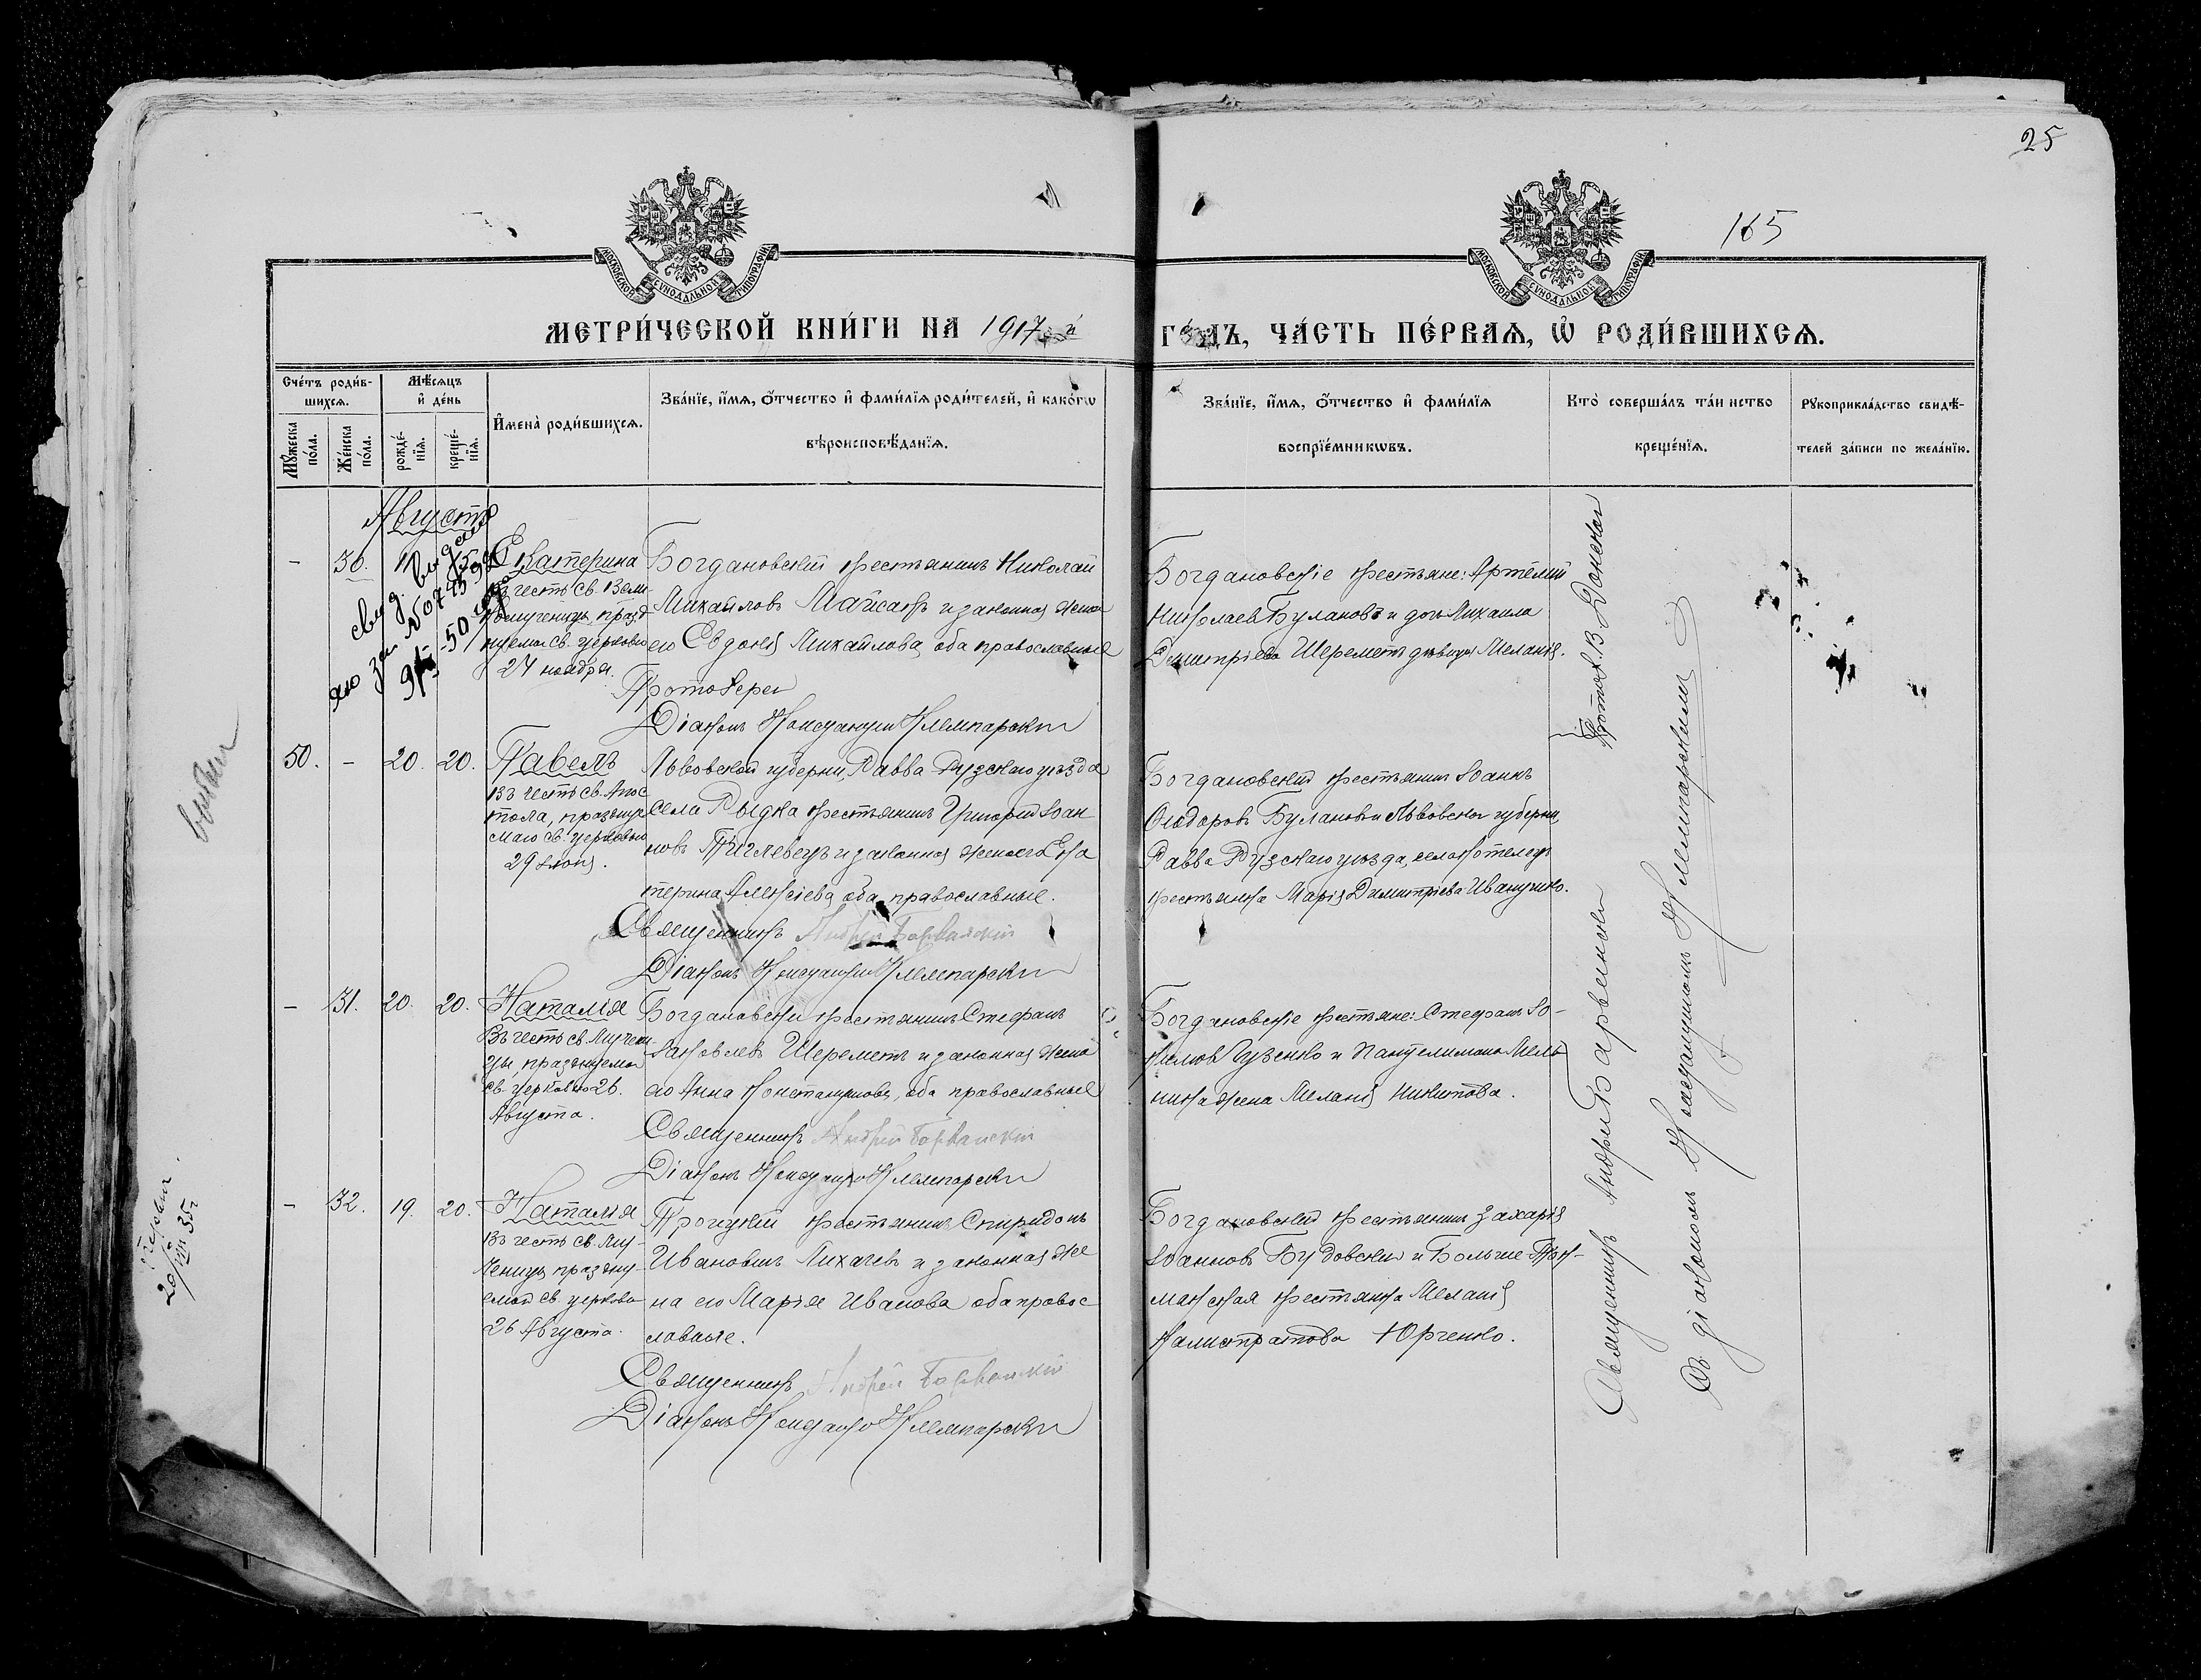 25
165
МОСКОВСКОЙ СѴНОДАЛЬНОЙ ТИПОГРАФІИ
МОСКОВСКОЙ СѴНОДАЛЬНОЙ ТИПОГРАФІИ
МЕТРИ́ЧЕСКОЙ КНИ́ГИ НА 1917 й
ГО́ДЪ, ЧА́СТЬ ПЕ́РВАЯ, Ѽ РОДИ́ВШИХСЯ.
Сче́тъ роди́в-
шихся.
Мѣ́сяцъ
и҆ де́нь
Му́жеска по́ла.
Же́нска по́ла.
рожде́-
нїя.
креще́-
нїя.
И҆мена̀ роди́вшихся.
Зва́нїе, и҆́мя, ѻ҆́тчество и҆ фами́лїя роди́телей, и҆ како́гѡ
вѣроисповѣ́данїя.
Зва́нїе, и҆́мя, ѻ҆́тчество и҆ фами́лїя
воспрїе́мникѡвъ.
Кто̀ соверша́лъ та́инство
креще́нїя.
Рꙋкоприкла́дство свидѣ́-
телей за́писи по жела́нїю.
Августъ
- 30. 11
Екатерина
въ честь св. Вели-
комученицы, празд
нуемой св. церковью
24 ноября.
Богдановскій крестьянинъ Николай
Михайловъ Майсакъ и законная жена
его Евдокія Михайлова, оба православные
Протоіерей
Діаконъ Клемпарскій
Богдановскіе крестьяне: Артемій
Николаевъ Булановъ и дочь Михаила
Димитріева Шереметъ дѣвица Меланія.
Протоі. В. Донской
50. - 20. 20.
Павелъ
въ честь св. Апос
тола, празднуе
маго св. церковью
29 Іюня.
Львовской губерніи, Равва Рузскаго уѣзда
села Рыдка крестьянинъ Григорій Іоан
новъ и законная жена его Ека
терина Алексіева, оба православные.
Священникъ Андрей Барвинскій
Діаконъ Клемпарскій
Богдановскій крестьянинъ Іоаннъ
Ѳеодоровъ Булановъ и Львовской губерніи,
Равва Рузскаго уѣзда, села
крестьянка Марія Димитріева
- 31. 20. 20.
Наталія
Въ честь св. Мучени
цы, празднуемой
св. церковью 26.
Августа.
Богдановскій крестьянинъ Стефанъ
Яковлевъ Шереметъ и законная жена
его Анна Константинова, оба православные
Священникъ Андрей Барвинскій
Діаконъ Клемпарскій
Богдановскіе крестьяне: Стефанъ Іо-
и Пантелимона Мель
ника жена Меланія Никитова.
- 32. 19. 20.
Наталія
Въ честь св. Му-
ченицы празну-
емой св. церковью
26 Августа.
Троицкій крестьянинъ Спиридонъ
Ивановичъ Лихачевъ и законная же
на его Марія Иванова оба правос
лавные.
Священникъ Андрей Барвинскій
Діаконъ Клемпарскій
Богдановскій крестьянинъ Захарія
Іоанновъ Будовскій и Больше-Ток-
макская крестьянка Меланія
Калистратова Юрченко.
Священникъ Андрей Барвинскій
Съ діакономъ Клемпарскимъ